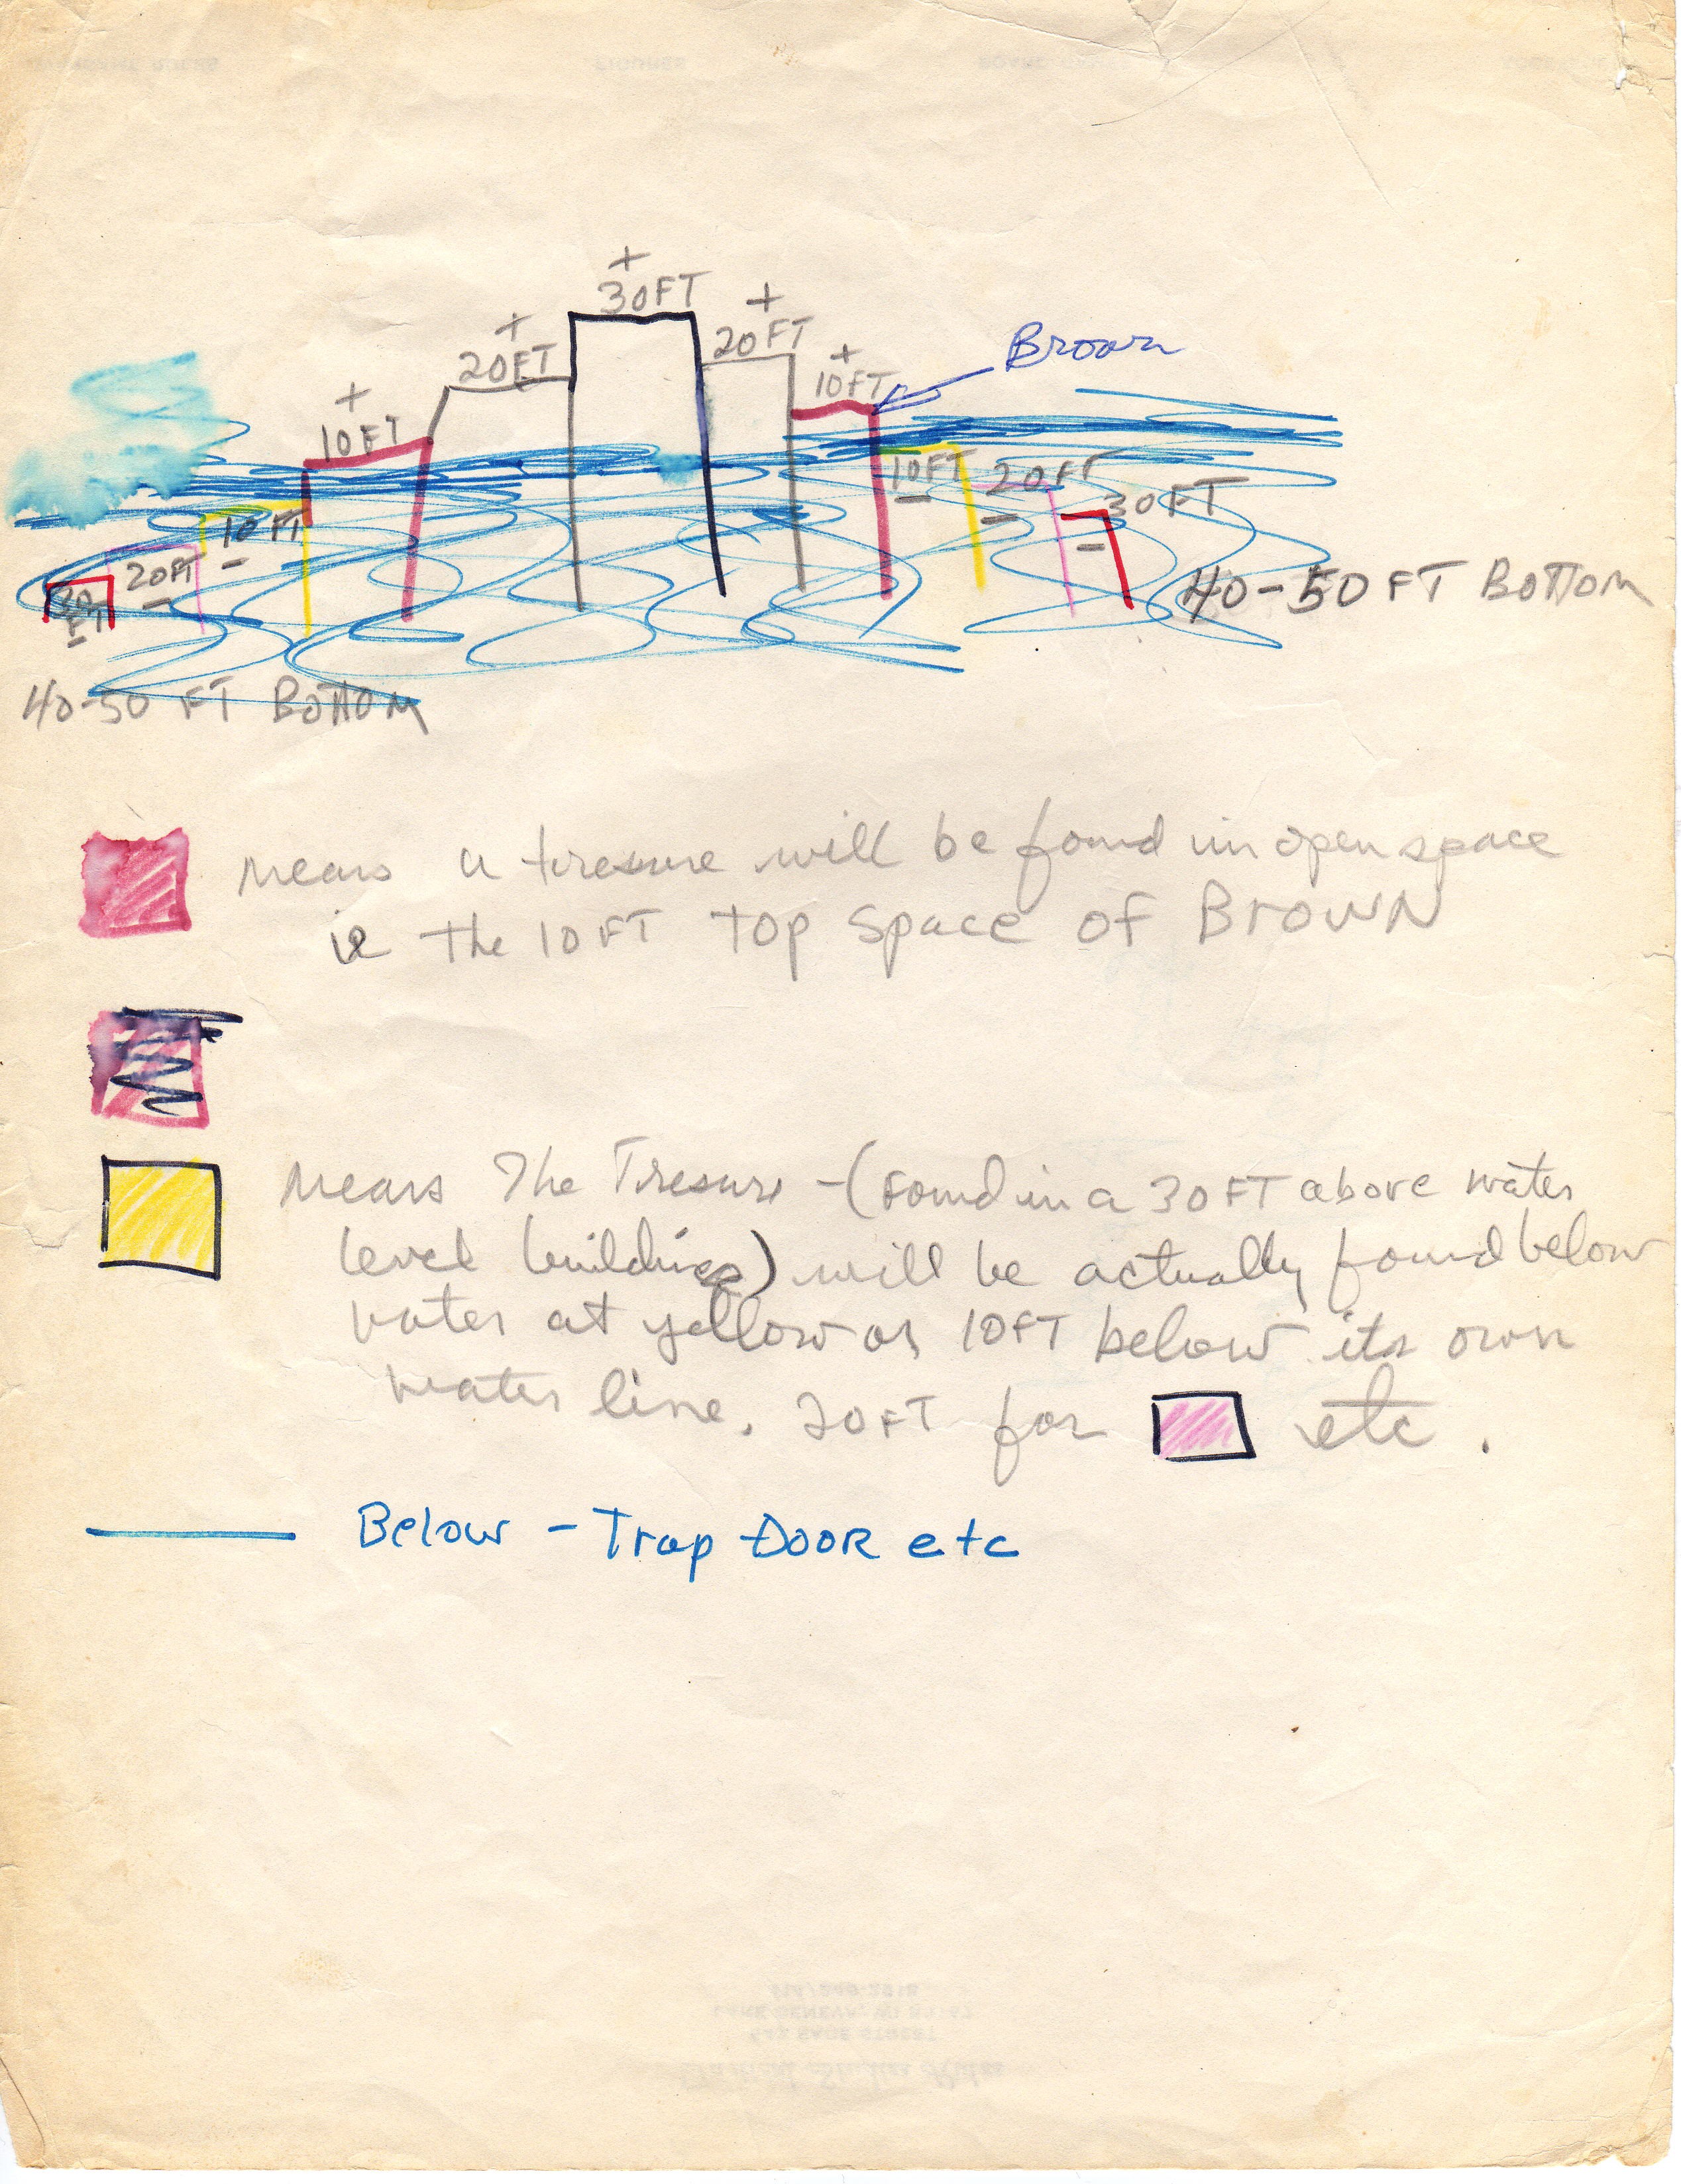 +
30FT
+
20FT
+
20FT
+
10FT
+
10FT
Brown
10FT
-
20FT
-
30FT
-
10FT
-
20FT
-
30
FT
-
40-50 FT BOTTOM
40-50 FT BOTTOM
Means a tresure will be found in open space
ie the 10FT top space of BROWN
Means The Tresure - (found in a 30FT above water
level building) will be actually found below
water at yellow or 10FT below its own
water line. 20FT for etc.
Below - Trap DOOR etc
LAKE GENEVA, WI